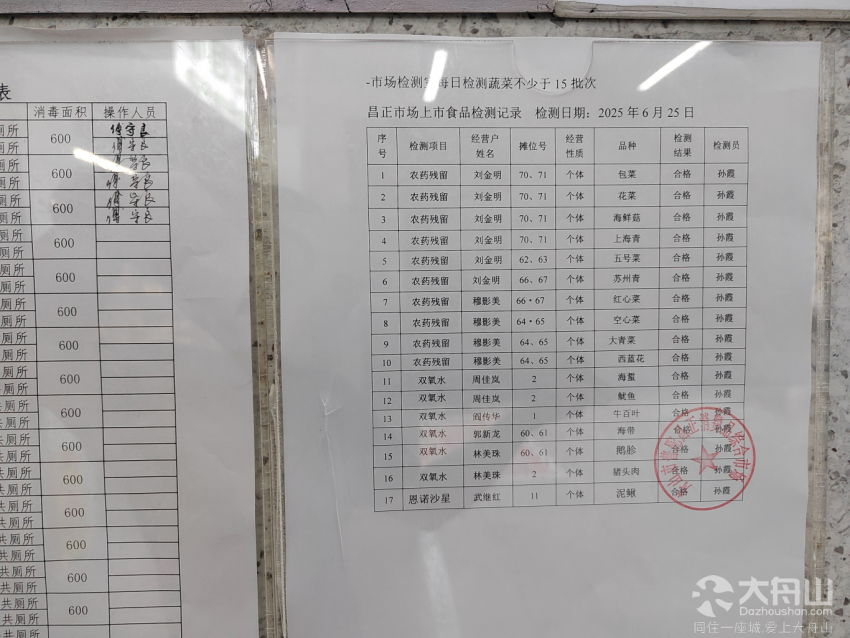 表
消毒面积 操作人员
厕所 600
厕所
厕所 600
厕所
厕所 600
厕所
厕所 600
厕所
厕所 600
厕所
厕所 600
厕所
厕所 600
厕所
厕所 600
厕所
共厕所 600
共厕所
共厕所 600
共厕所
共厕所 600
共厕所
共厕所 600
共厕所
共厕所 600
共厕所
共厕所 600
共厕所
共厕所 600
-市场检测室每日检测蔬菜不少于15批次
昌正市场上市食品检测记录 检测日期：2025年6月25日
序号 检测项目 经营户姓名 摊位号 经营性质 品种 检测结果 检测员
1 农药残留 刘金明 70、71 个体 包菜 合格 孙霞
2 农药残留 刘金明 70、71 个体 花菜 合格 孙霞
3 农药残留 刘金明 70、71 个体 海鲜菇 合格 孙霞
4 农药残留 刘金明 70、71 个体 上海青 合格 孙霞
5 农药残留 刘金明 62、63 个体 五号菜 合格 孙霞
6 农药残留 刘金明 66、67 个体 苏州青 合格 孙霞
7 农药残留 穆影美 66·67 个体 红心菜 合格 孙霞
8 农药残留 穆影美 64·65 个体 空心菜 合格 孙霞
9 农药残留 穆影美 64、65 个体 大青菜 合格 孙霞
10 农药残留 穆影美 64、65 个体 西蓝花 合格 孙霞
11 双氧水 周佳岚 2 个体 海蜇 合格 孙霞
12 双氧水 周佳岚 2 个体 鱿鱼 合格 孙霞
13 双氧水 阎传华 1 个体 牛百叶 合格 孙霞
14 双氧水 郭新龙 60、61 个体 海带 合格 孙霞
15 双氧水 林美珠 60、61 个体 鹅胗 合格 孙霞
16 双氧水 林美珠 2 个体 猪头肉 合格 孙霞
17 恩诺沙星 武继红 11 个体 泥鳅 合格 孙霞
大舟山
Dazhoushan.com
同住一座城 爱上大舟山